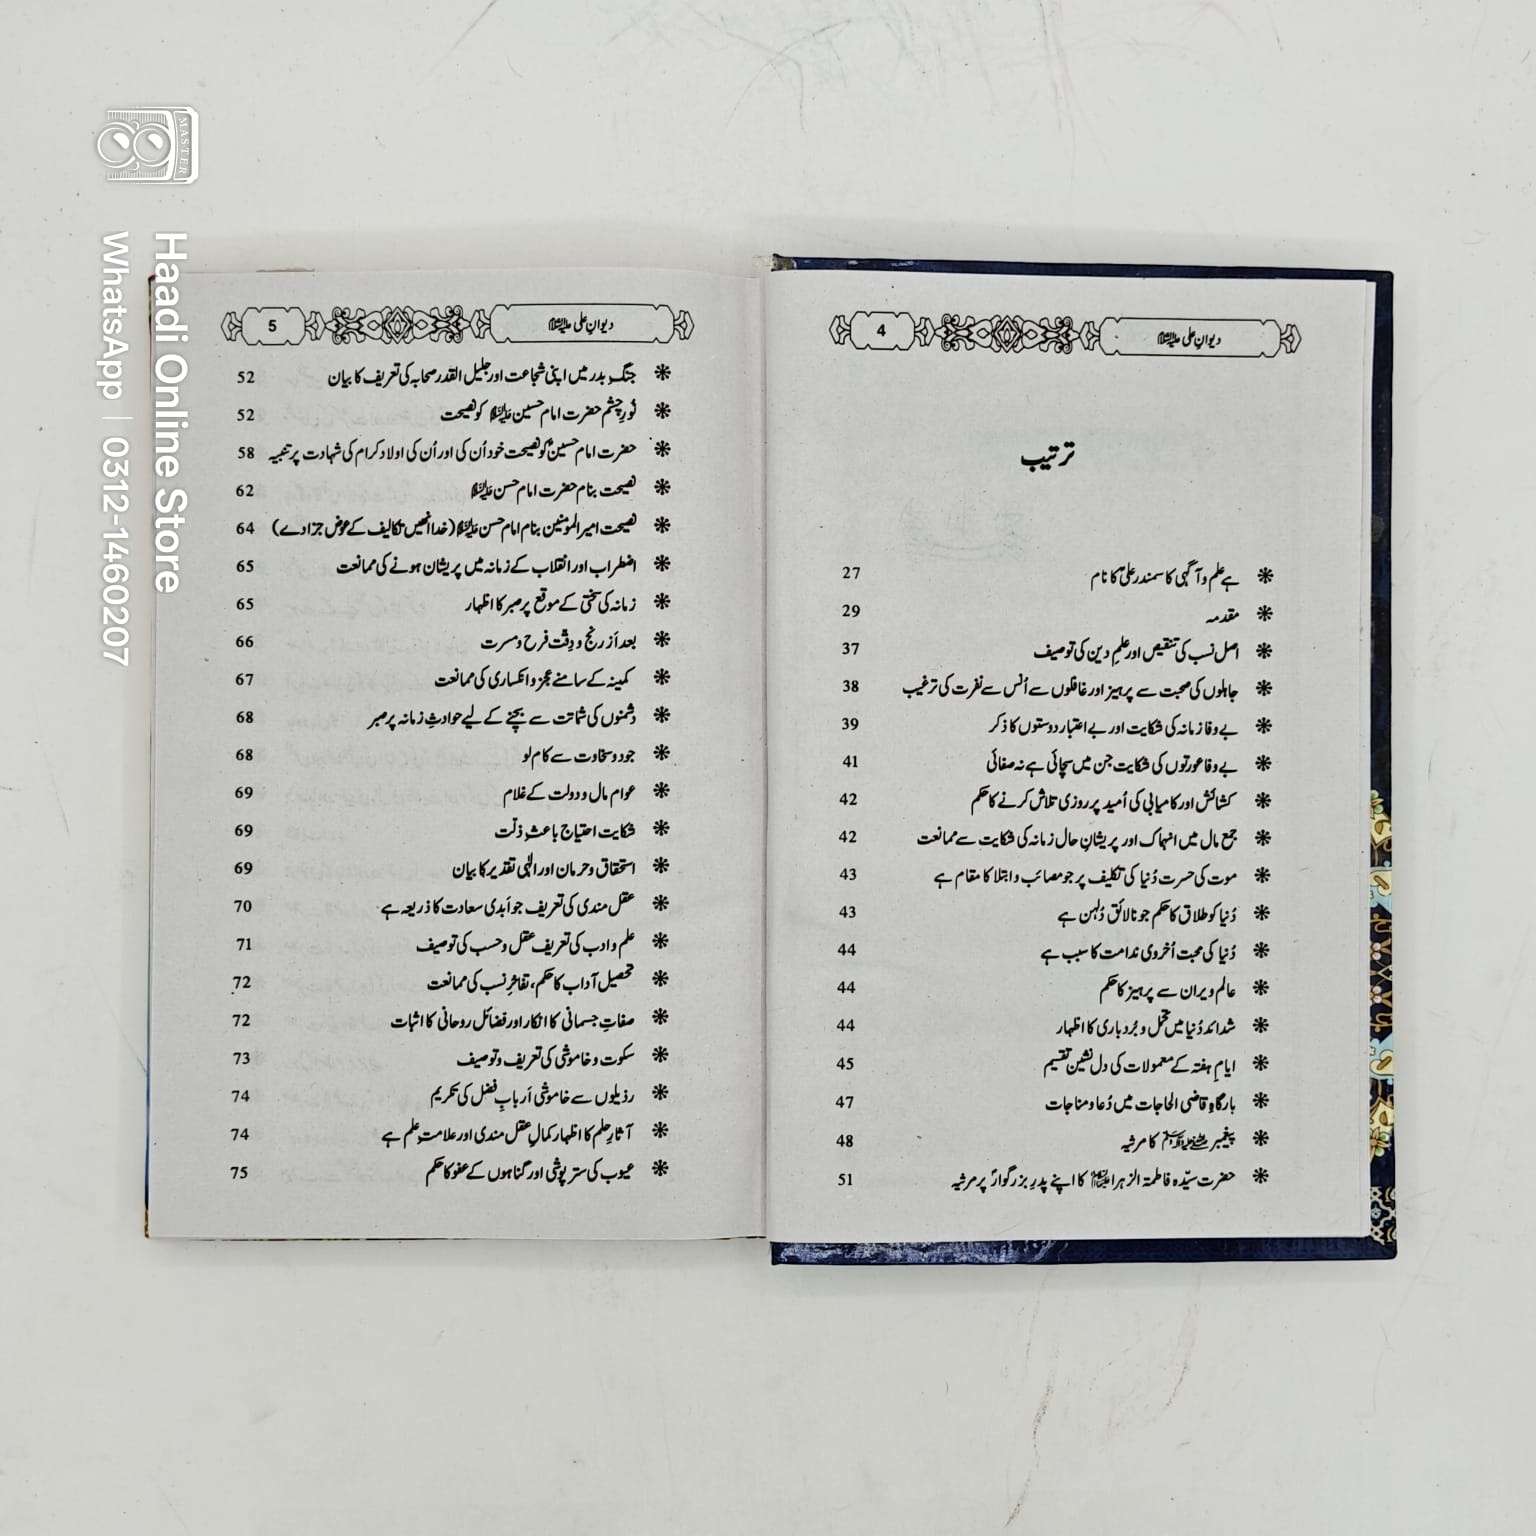 دیوانِ علی علیہ السلام 4
ترتیب
ہے علم و آگہی کا سمندر علیؑ کا نام 27
مقدمہ 29
اصل نسب کی تنقیص اور علمِ دین کی توصیف 37
جاہلوں کی صحبت سے پرہیز اور غافلوں سے اُنس سے نفرت کی ترغیب 38
بے وفا زمانہ کی شکایت اور بے اعتبار دوستوں کا ذکر 39
بے وفا عورتوں کی شکایت جن میں سچائی ہے نہ صفائی 41
کشائش اور کامیابی کی اُمید پر روزی تلاش کرنے کا حکم 42
جمع مال میں انہماک اور پریشان حال زمانہ کی شکایت سے ممانعت 42
موت کی حسرت دُنیا کی تکلیف پر جو مصائب و ابتلا کا مقام ہے 43
دُنیا کو طلاق کا حکم جو نالائق دُلہن ہے 43
دُنیا کی محبت اُخروی ندامت کا سبب ہے 44
عالم ویران سے پرہیز کا حکم 44
شدائد دُنیا میں تحمل و بُردباری کا اظہار 44
ایامِ ہفتہ کے معمولات کی دل نشین تقسیم 45
بارگاہِ قاضی الحاجات میں دُعا و مناجات 47
پیغمبر ﷺ کا مرثیہ 48
حضرت سیّدہ فاطمۃ الزہرا علیہا السلام کا اپنے پدرِ بزرگوارؐ پر مرثیہ 51
دیوانِ علی علیہ السلام 5
جنگِ بدر میں اپنی شجاعت اور جلیل القدر صحابہ کی تعریف کا بیان 52
نُورِ چشم حضرت امام حسین علیہ السلام کو نصیحت 52
حضرت امام حسینؑ کو نصیحت خود اُن کی اور اُن کی اولاد کرام کی شہادت پر تنبیہ 58
نصیحت بنام حضرت امام حسن علیہ السلام 62
نصیحت امیر المومنین بنام امام حسن علیہ السلام (خدا انھیں تکالیف کے عوض جزا دے) 64
اضطراب اور انقلاب کے زمانہ میں پریشان ہونے کی ممانعت 65
زمانہ کی سختی کے موقع پر صبر کا اظہار 65
بعد اَز رنج و دِقّت فرح و مسرت 66
کمینہ کے سامنے عجز و انکساری کی ممانعت 67
دشمنوں کی شماتت سے بچنے کے لیے حوادثِ زمانہ پر صبر 68
جود و سخاوت سے کام لو 68
عوام مال و دولت کے غلام 69
شکایت احتیاج باعثِ ذلّت 69
استحقاق و حرمان اور الٰہی تقدیر کا بیان 69
عقل مندی کی تعریف جو اَبدی سعادت کا ذریعہ ہے 70
علم و ادب کی تعریف عقل و حسب کی توصیف 71
تحصیل آداب کا حکم، تفاخرِ نسب کی ممانعت 72
صفاتِ جسمانی کا انکار اور فضائل روحانی کا اثبات 72
سکوت و خاموشی کی تعریف و توصیف 73
رذیلوں سے خاموشی اَربابِ فضل کی تکریم 74
آثارِ حلم کا اظہار کمالِ عقل مندی اور علامتِ علم ہے 74
عیوب کی ستر پوشی اور گناہوں کے عفو کا حکم 75
MASTER
Haadi Online Store
WhatsApp | 0312-1460207